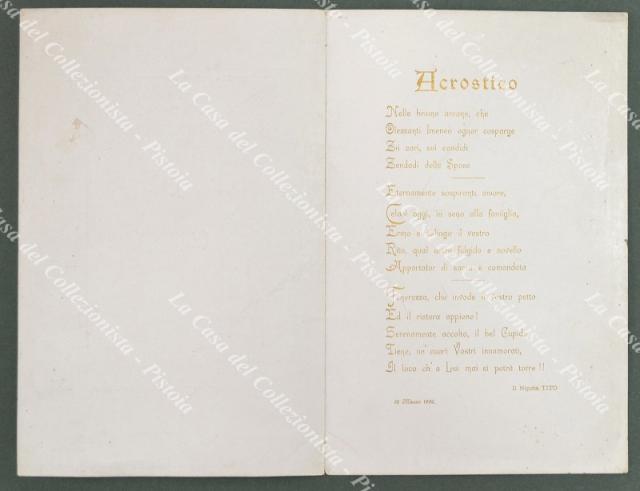 Acrostico
Nelle brune arcane, che
Olezzanti Imeneo ognor cosparge
Zii cari, sui candidi
Zendadi della Sposa
Eternamente sospiranti amore,
oggi, in seno alla famiglia,
il vostro
Rito, qual fulgido e novello
Apportator di e comandata
che invade il vostro petto
Ed il ristora appieno!
Serenamente accolto, il bel Cupido
Tiene, ne' cuori Vostri innamorati,
Il loco ch'a Lui mai si potrà torre!!
Il Nipote TITO
1896.
La Casa del Collezionista - Pistoia